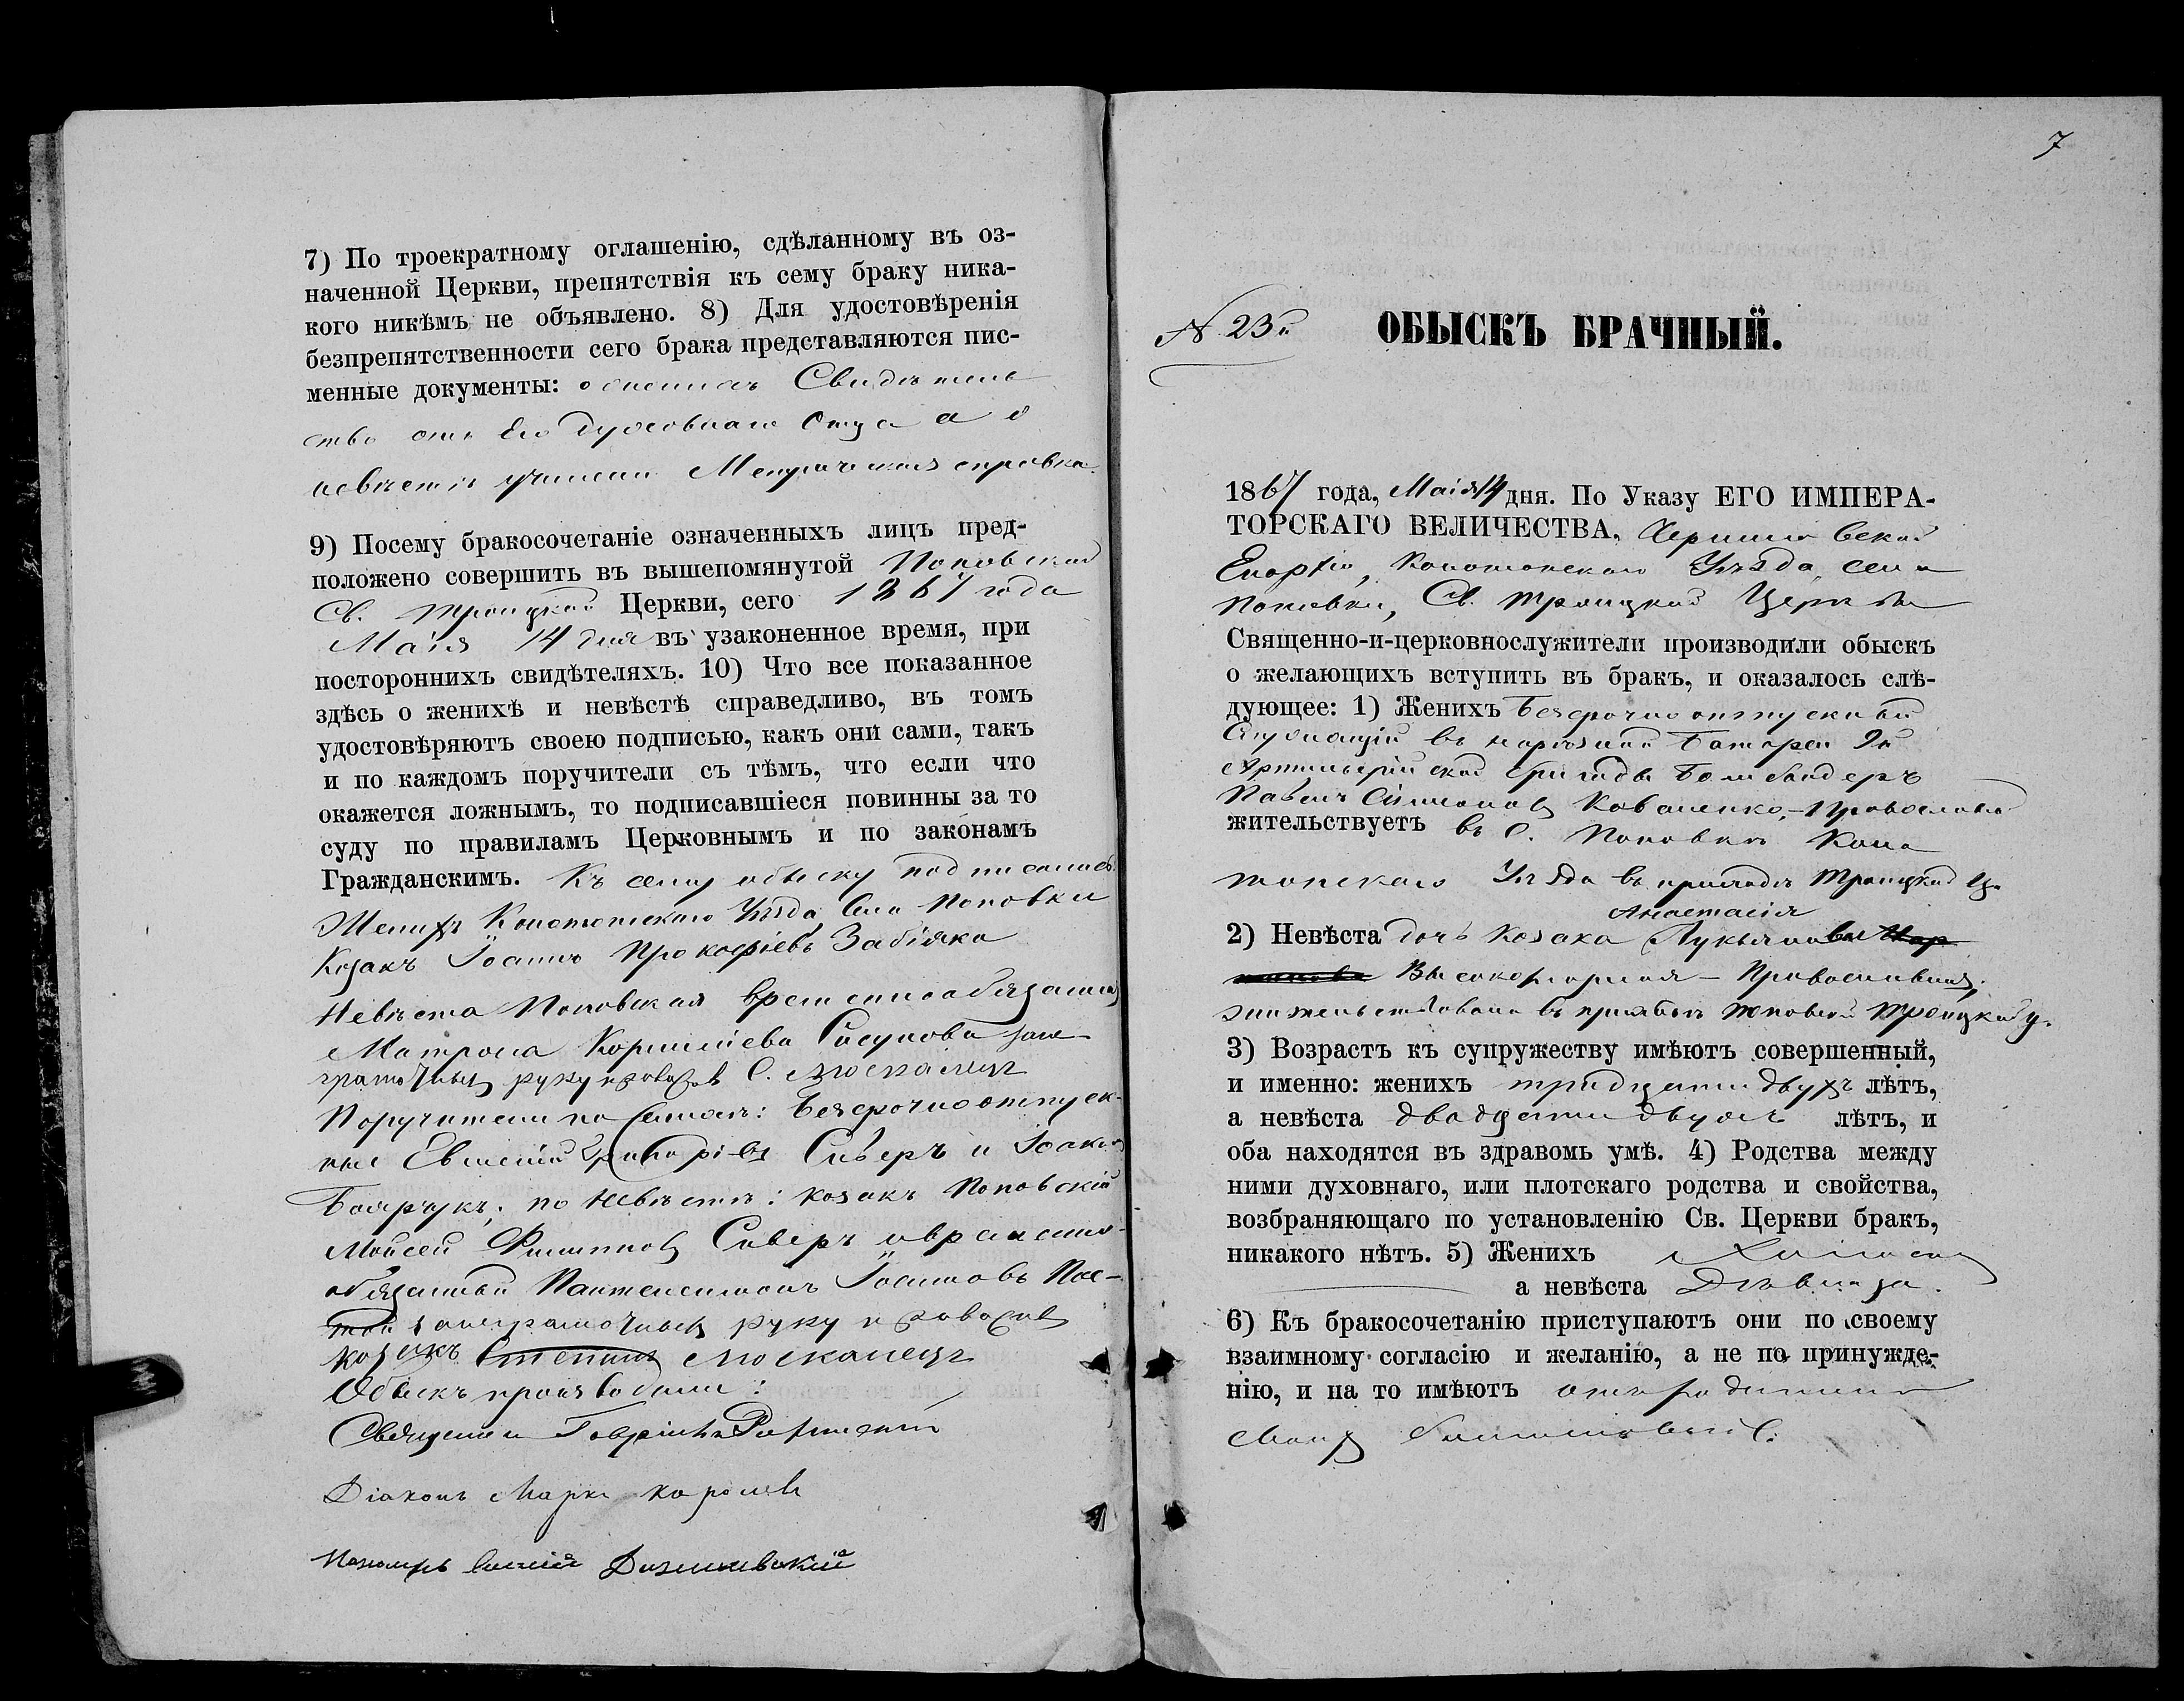 7) По троекратному оглашенію, сдѣланному въ оз-
наченной Церкви, препятствія къ сему браку ника-
кого никѣмъ не объявлено. 8) Для удостовѣренія
безпрепятственности сего брака представляются пис-
менные документы: Свидѣтель
ство отъ Его Духовнаго Отца а о
невѣстѣ учинена Метрическая справка.
9) Посему бракосочетаніе означенныхъ лицъ пред-
положено совершить въ вышепомянутой Поповской
Св. Троицкой Церкви, сего 1867 года
Маія 14 дня въ узаконенное время, при
постороннихъ свидѣтеляхъ. 10) Что все показанное
здѣсь о женихѣ и невѣстѣ справедливо, въ томъ
удостовѣряютъ своею подписью, какъ они сами, такъ
и по каждомъ поручители съ тѣмъ, что если что
окажется ложнымъ, то подписавшіеся повинны за то
суду по правиламъ Церковнымъ и по законамъ
Гражданскимъ. Къ сему обыску подписались:
Женихъ Конотопскаго Уѣзда Села Поповки
Козакъ Іоаннъ Прокофіевъ Забіяка
Невѣста Поповская временнообязанная
Матрона Корниліева
Поручители по женихѣ: Безсрочноотпуск-
ные Евменій Григоріевъ Сиверъ и Іоакимъ
Боярчукъ; по Невѣстѣ: козакъ Поповскій
Моисей Филиповъ Сиверъ и временно-
обязанный Пантелеимонъ Іоанновъ Пос-
той а за неграмотныхъ руку
козакъ Степанъ Москалецъ
Обыскъ производили:
Священникъ Гавріилъ
Діаконъ Марко
Пономарь
7
N 23й
ОБЫСКЪ БРАЧНЫЙ.
1867 года, Маія 14 дня. По Указу ЕГО ИМПЕРА-
ТОРСКАГО ВЕЛИЧЕСТВА, Черниговской
Епархіи, Конотопскаго Уѣзда, села
Поповки, Св. Троицкой Церкви
Священно-и-церковнослужители производили обыскъ
о желающихъ вступить въ бракъ, и оказалось слѣ-
дующее: 1) Женихъ Безсрочноотпускный
Служащій въ нарѣзной батареи 9й
Артилерійской бригады Бомбандеръ
Павелъ Симоновъ Коваленко,—Православный
жительствуетъ въ С. Поповкѣ Коно
топскаго Уѣзда въ приходѣ Троицкой Ц.
Анастасія
2) Невѣста дочь Козака Лукьянова
Высокогорная — Православная,
жительствовала въ приходѣ Поповской Троицкой ц.
3) Возрастъ къ супружеству имѣютъ совершенный,
и именно: женихъ тридцати двухъ лѣтъ,
а невѣста двадцати двухъ лѣтъ, и
оба находятся въ здравомъ умѣ. 4) Родства между
ними духовнаго, или плотскаго родства и свойства,
возбраняющаго по установленію Св. Церкви бракъ,
никакого нѣтъ. 5) Женихъ Холостъ
а невѣста Дѣвица.
6) Къ бракосочетанію приступаютъ они по своему
взаимному согласію и желанію, а не по принужде-
нію, и на то имѣютъ отъ родителей